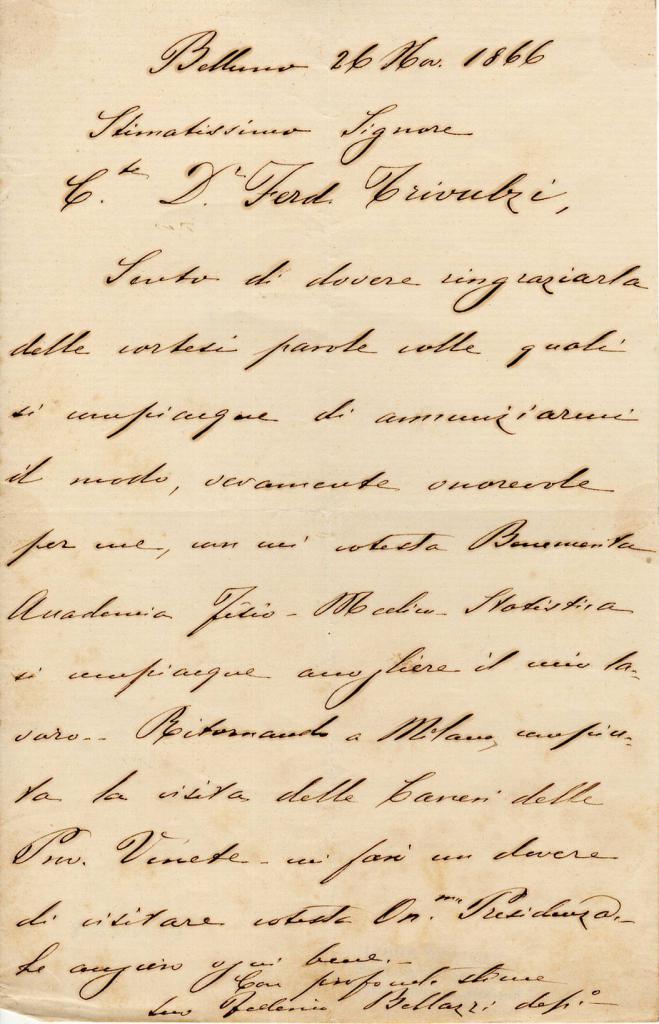 Belluno 26 Nov. 1866
Stimatissimo Signore
C.te D.r Ferd. Trivulzi,
Sento di dovere ringraziarla
delle cortesi parole colle quali
si compiacque di annunziarmi
il modo, veramente onorevole
per me, con cui cotesta Benemerita
Accademia Fisio-Medico-Statistica
si compiacque accogliere il mio la-
voro.. Ritornando a Milano, compiu-
ta la visita delle Carceri delle
Prov. Venete - mi farò un dovere
di visitare cotesta On.ma Presidenza.-
Le auguro ogni bene.-
Con profonda stima
suo Federico Bellazzi dep.o-